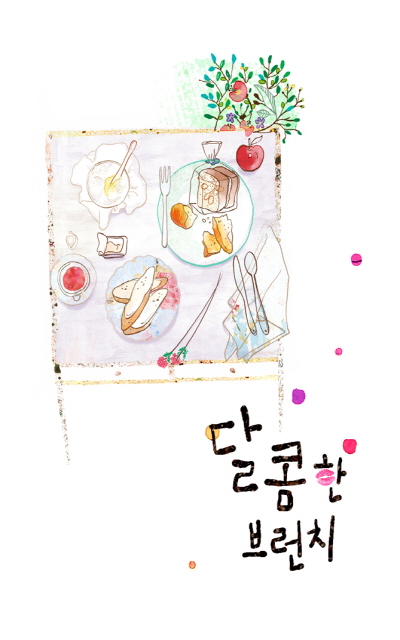 달콤한
브런치